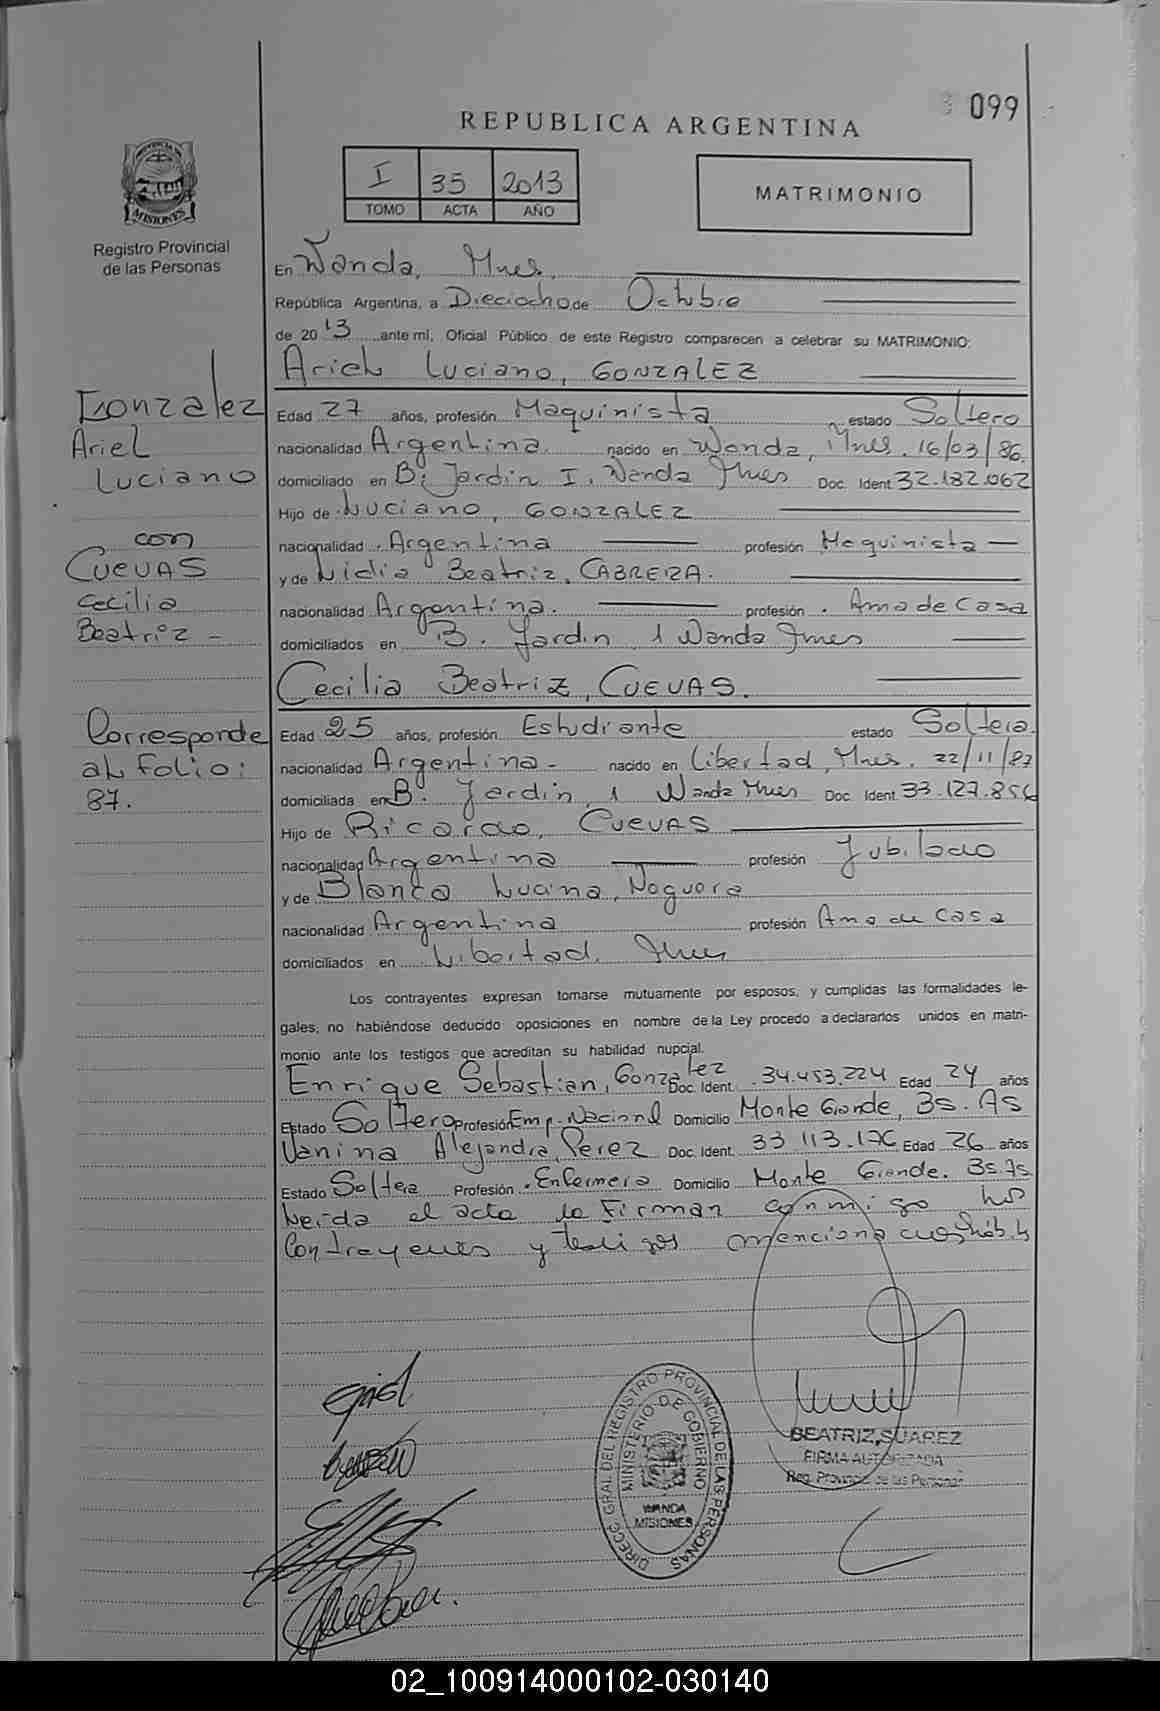 099
REPUBLICA ARGENTINA
I 35 2013
TOMO ACTA AÑO
MATRIMONIO
PROVINCIA DE
MISIONES
Registro Provincial
de las Personas
En Wanda, Mnes.
República Argentina, a Dieciocho de Octubre
de 20 13 ante mí, Oficial Público de este Registro comparecen a celebrar su MATRIMONIO:
Ariel Luciano, GONZALEZ
Gonzalez
Ariel
Luciano
con
CUEVAS
Cecilia
Beatriz -
Corresponde
al Folio:
87.
Edad 27 años, profesión Maquinista estado Soltero
nacionalidad Argentina. nacido en Wanda, Mnes. 16/03/86.
domiciliado en B: Jardin I. Wanda Mnes Doc. Ident. 32.182.062
Hijo de Luciano, GONZALEZ
nacionalidad Argentina profesión Maquinista
y de Lidia Beatriz, CABRERA.
nacionalidad Argentina. profesión Ama de Casa
domiciliados en B. Jardin 1 Wanda Mnes
Cecilia Beatriz, CUEVAS.
Edad 25 años, profesión Estudiante estado Soltera.
nacionalidad Argentina - nacido en Libertad, Mnes. 22/11/87
domiciliada en B. Jardin, 1 Wanda Mnes Doc. Ident. 33.127.856
Hijo de Ricardo, CUEVAS
nacionalidad Argentina profesión Jubilado
y de Blanca Lucina, Noguera
nacionalidad Argentina profesión Ama de Casa
domiciliados en Libertad. Mnes
Los contrayentes expresan tomarse mutuamente por esposos, y cumplidas las formalidades le-
gales, no habiéndose deducido oposiciones en nombre de la Ley procedo a declararlos unidos en matri-
monio ante los testigos que acreditan su habilidad nupcial.
Enrique Sebastian, Gonzalez Doc. Ident. 34.453.224 Edad 24 años
Estado Soltero Profesión Emp. Nacional Domicilio Monte Grande, Bs. As
Vanina Alejandra, Perez Doc. Ident. 33 113.176 Edad 26 años
Estado Soltera Profesión Enfermera Domicilio Monte Grande. Bs. As.
Leida el acta la Firman conmigo los
Contrayentes y testigos mencionados
BEATRIZ SUAREZ
FIRMA AUTORIZADA
Reg. Provincial de las Personas
DIRECC. GRAL DEL REGISTRO PROVINCIAL DE LAS PERSONAS
MINISTERIO DE GOBIERNO
WANDA
MISIONES
02_100914000102-030140